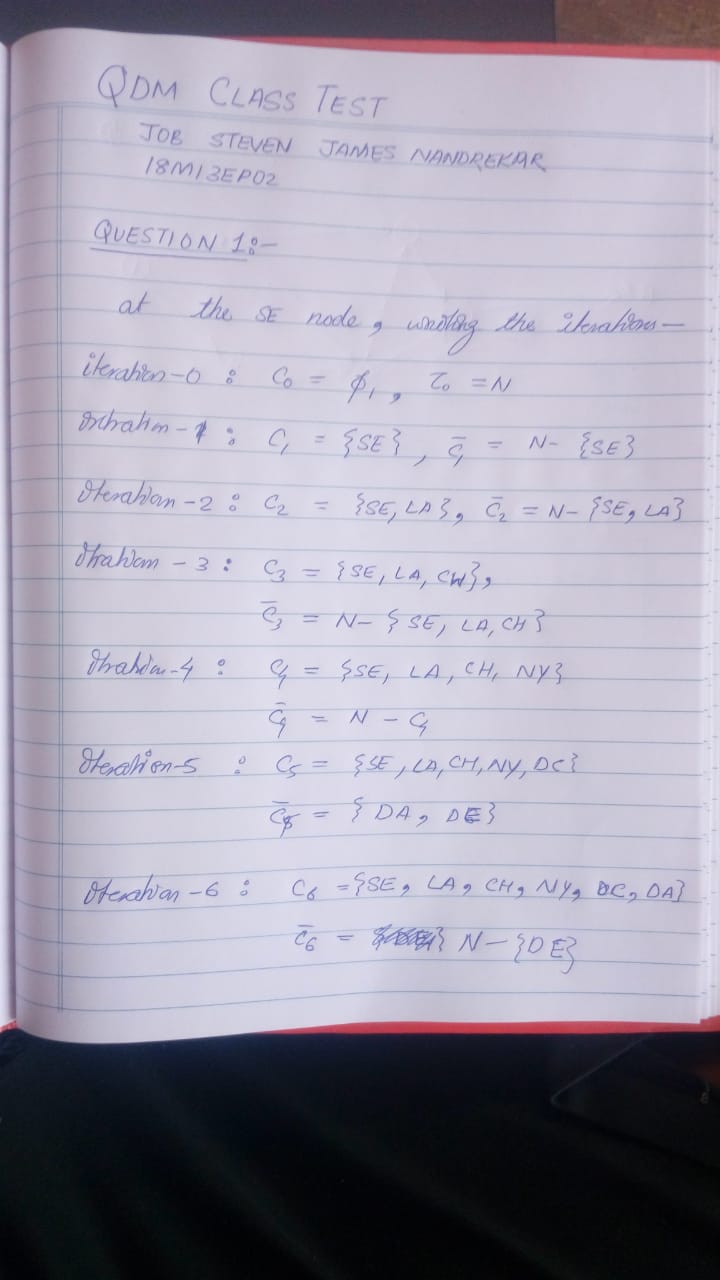 QDM CLASS TEST
JOB STEVEN JAMES NANDREKAR
18MI3EP02
QUESTION 1:-
at the SE node, writing the iterations—
iteration-0 : C₀ = ϕ, , C̅₀ = N
Iteration-1 : C₁ = {SE} , C̅₁ = N- {SE}
Iteration-2 : C₂ = {SE, LA}, C̅₂ = N- {SE, LA}
Iteration - 3 : C₃ = {SE, LA, CH},
C̅₃ = N- {SE, LA, CH}
Iteration-4 : C₄ = {SE, LA, CH, NY}
C̅₄ = N - C₄
Iteration-5 : C₅ = {SE, LA, CH, NY, DC}
C̅₅ = {DA, DE}
Iteration-6 : C₆ = {SE, LA, CH, NY, DC, DA}
C̅₆ = N-{DE}